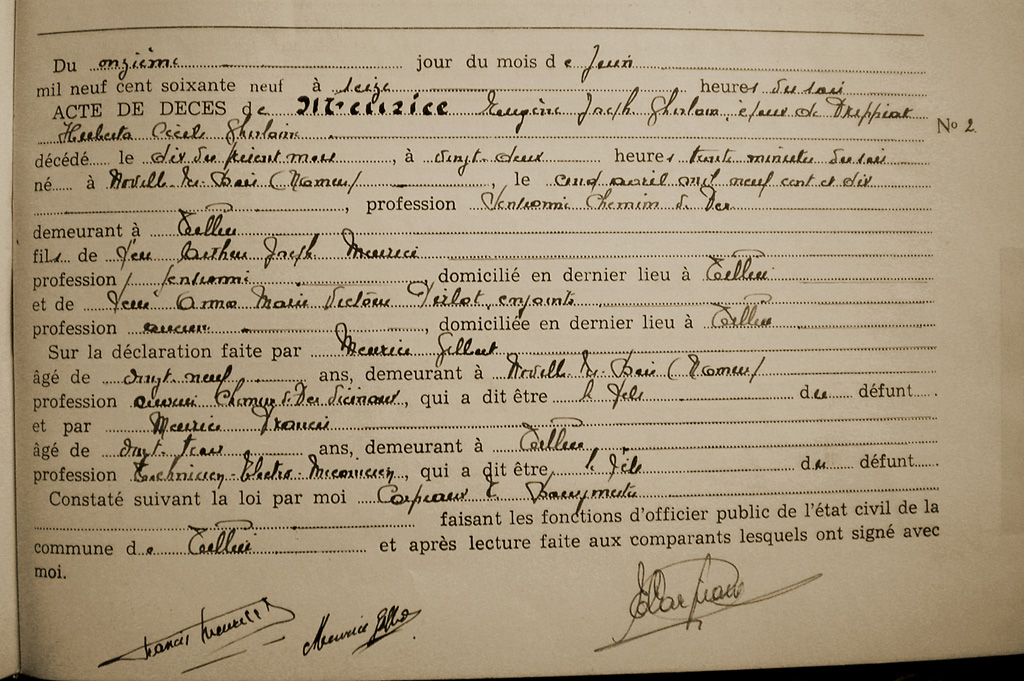 Du onzième jour du mois de Juin
mil neuf cent soixante neuf à seize heures du soir
ACTE DE DECES de Meurice Eugène Joseph Ghislain, époux de
Nº 2.
Herberta Cécile Ghislain
décédé le dix du présent mois, à vingt-deux heures trente minutes du soir
né à (Namur), le cinq avril mil neuf cent et dix
, profession Pensionné Chemin de Fer
demeurant à Tellin
fils de feu Arthur Joseph Meurice
profession pensionné, domicilié en dernier lieu à Tellin
et de Anna Marie conjoints
profession aucune, domiciliée en dernier lieu à Tellin
Sur la déclaration faite par Meurice Gilbert
âgé de vingt neuf ans, demeurant à (Namur)
profession ouvrier Chemin de Fer vicinaux, qui a dit être le fils du défunt.
et par Meurice Francis
âgé de vingt-trois ans, demeurant à Tellin
profession Technicien-Electro-Mecanicien, qui a dit être le fils du défunt.
Constaté suivant la loi par moi Bourgmestre
faisant les fonctions d'officier public de l'état civil de la
commune de Tellin et après lecture faite aux comparants lesquels ont signé avec
moi.
Francis Meurice Meurice